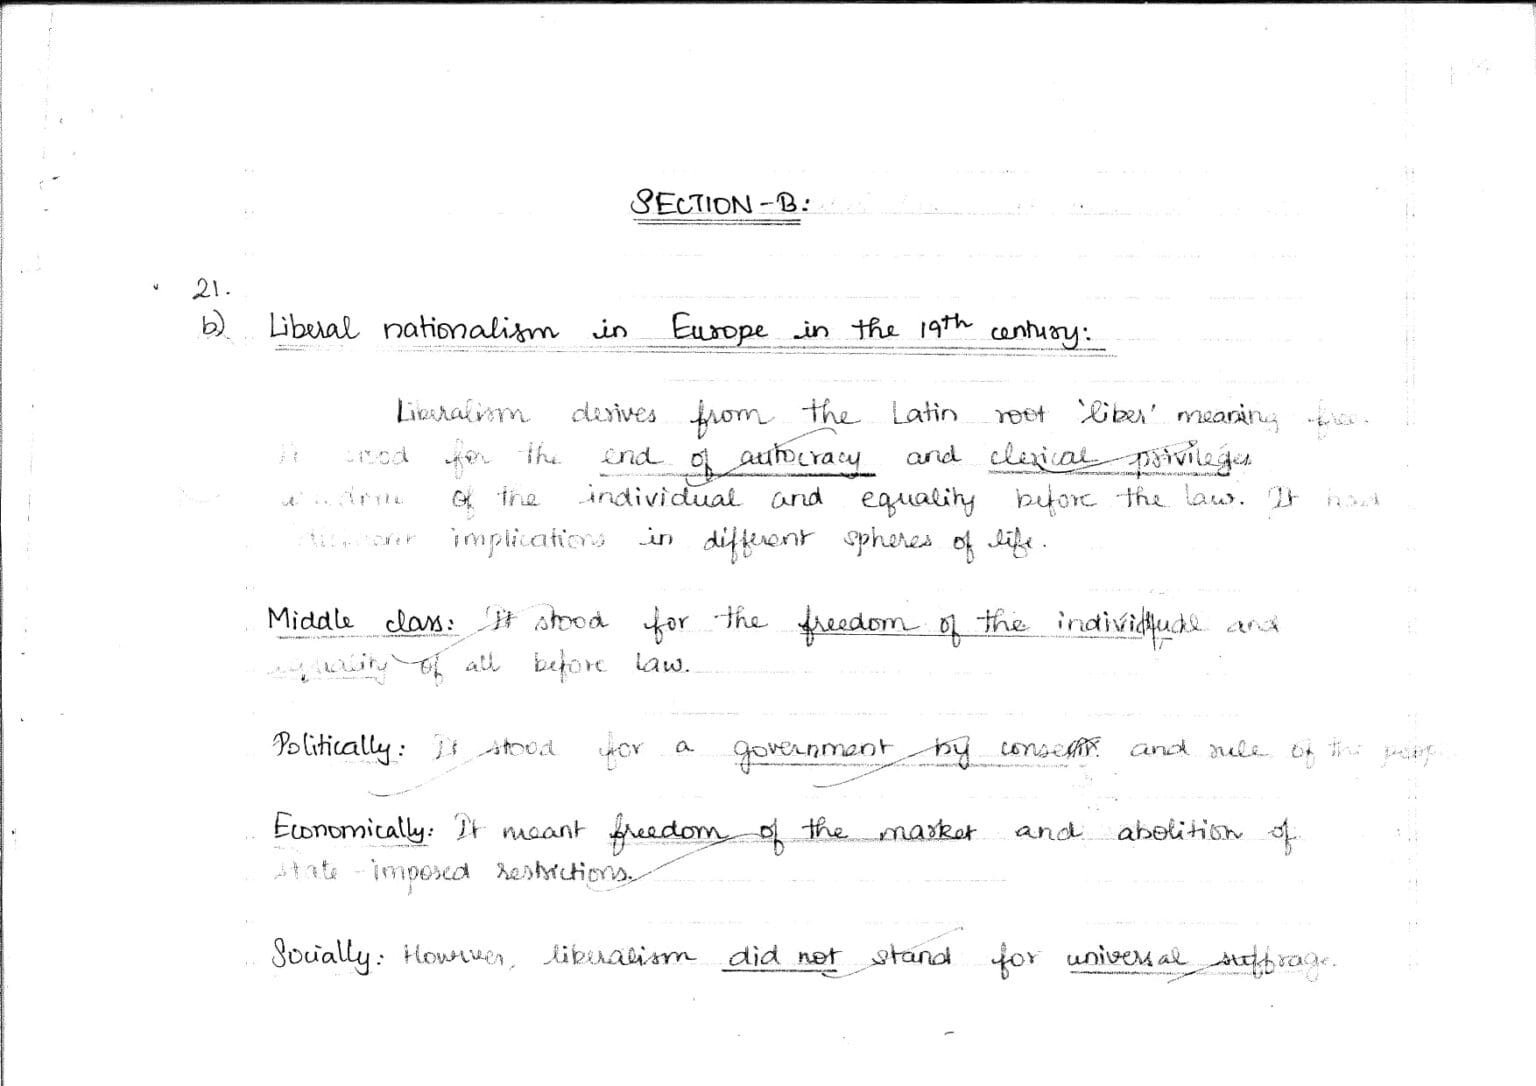 SECTION-B:
21.
b) Liberal nationalism in Europe in the 19th century:
Liberalism derives from the Latin root 'liber' meaning free.
It stood for the end of autocracy and clerical privileges
of the individual and equality before the law. It had
different implications in different spheres of life.
Middle class: It stood for the freedom of the individual and
equality of all before law.
Politically: It stood for a government by consent and rule of the
Economically: It meant freedom of the market and abolition of
state-imposed restrictions.
Socially: However, liberalism did not stand for universal suffrage.